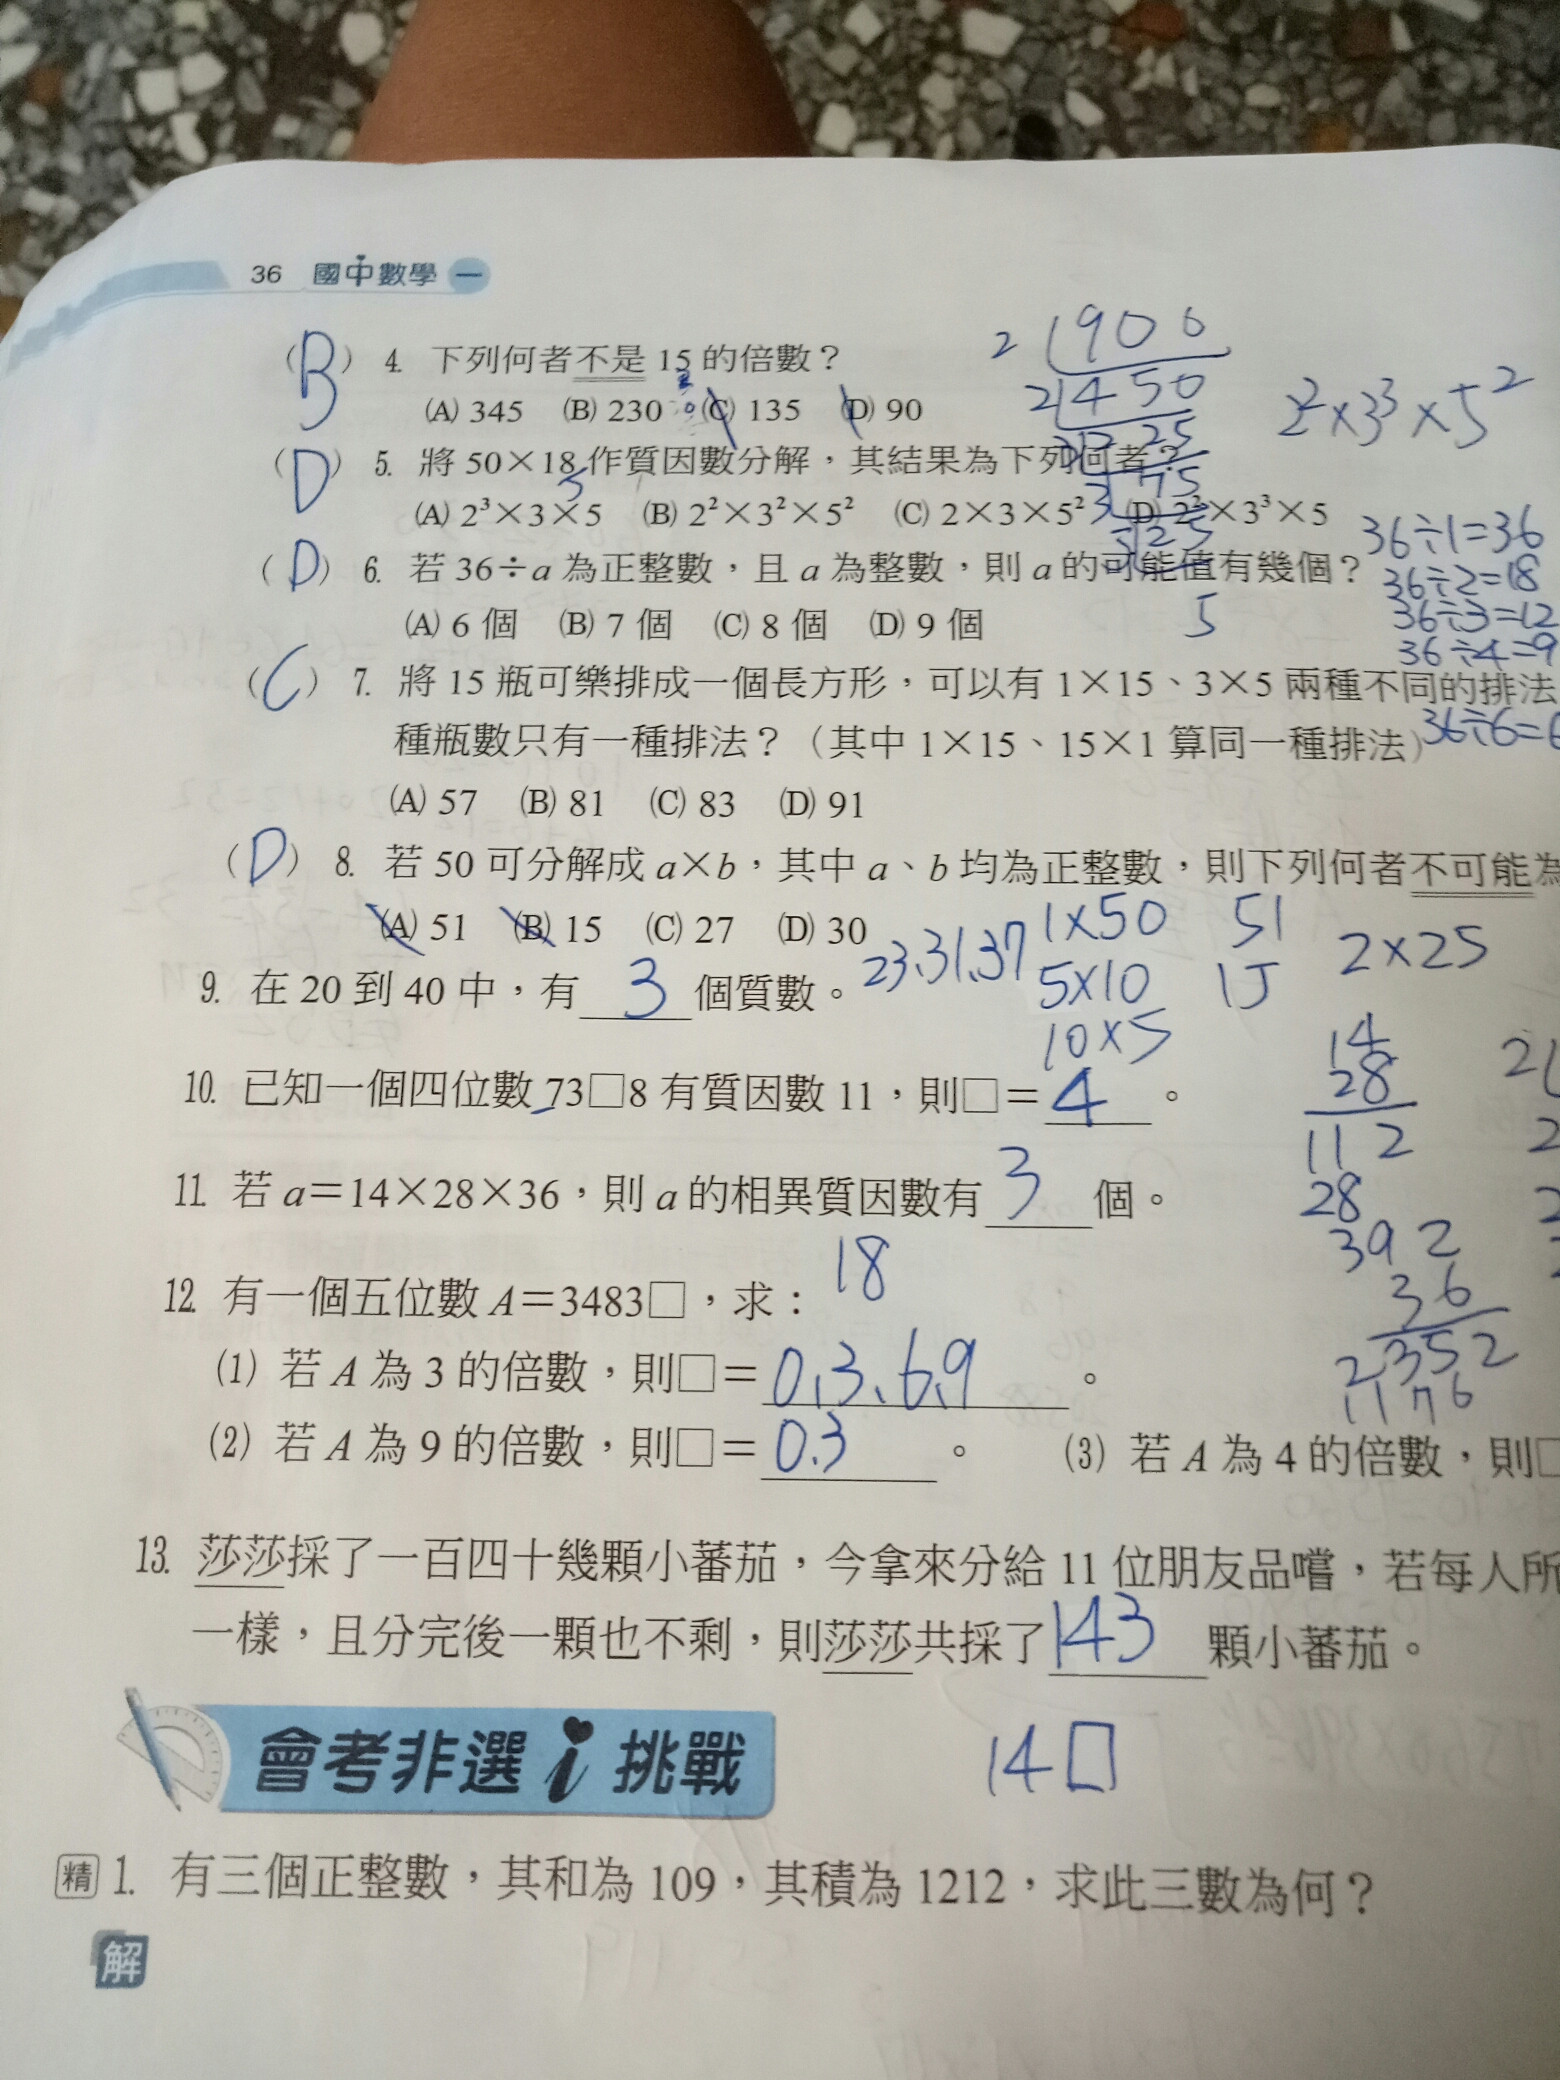 36 國中數學 一
(B) 4. 下列何者不是 15 的倍數？
(A) 345 (B) 230 (C) 135 (D) 90
(D) 5. 將 50×18 作質因數分解，其結果為下列何者？
(A) 2³×3×5 (B) 2²×3²×5² (C) 2×3×5² (D) 2²×3³×5
(D) 6. 若 36÷a 為正整數，且 a 為整數，則 a 的可能值有幾個？
(A) 6 個 (B) 7 個 (C) 8 個 (D) 9 個
(C) 7. 將 15 瓶可樂排成一個長方形，可以有 1×15、3×5 兩種不同的排法
種瓶數只有一種排法？（其中 1×15、15×1 算同一種排法）
(A) 57 (B) 81 (C) 83 (D) 91
(D) 8. 若 50 可分解成 a×b，其中 a、b 均為正整數，則下列何者不可能為
(A) 51 (B) 15 (C) 27 (D) 30
9. 在 20 到 40 中，有 3 個質數。
10. 已知一個四位數 73□8 有質因數 11，則□＝ 4 。
11. 若 a＝14×28×36，則 a 的相異質因數有 3 個。
18
12. 有一個五位數 A＝3483□，求：
(1) 若 A 為 3 的倍數，則□＝ 0、3、6、9 。
(2) 若 A 為 9 的倍數，則□＝ 0.3 。 (3) 若 A 為 4 的倍數，則□
13. 莎莎採了一百四十幾顆小蕃茄，今拿來分給 11 位朋友品嚐，若每人所
一樣，且分完後一顆也不剩，則莎莎共採了 143 顆小蕃茄。
14□
會考非選 i 挑戰
精 1. 有三個正整數，其和為 109，其積為 1212，求此三數為何？
解
2 900
2 450
2²×3³×5²
5
36÷1=36
36÷2=18
36÷3=12
36÷4=9
36÷6=6
23、31、37
1×50 51
5×10 15
10×5
2×25
14
28
112
28
392
36
2352
1176